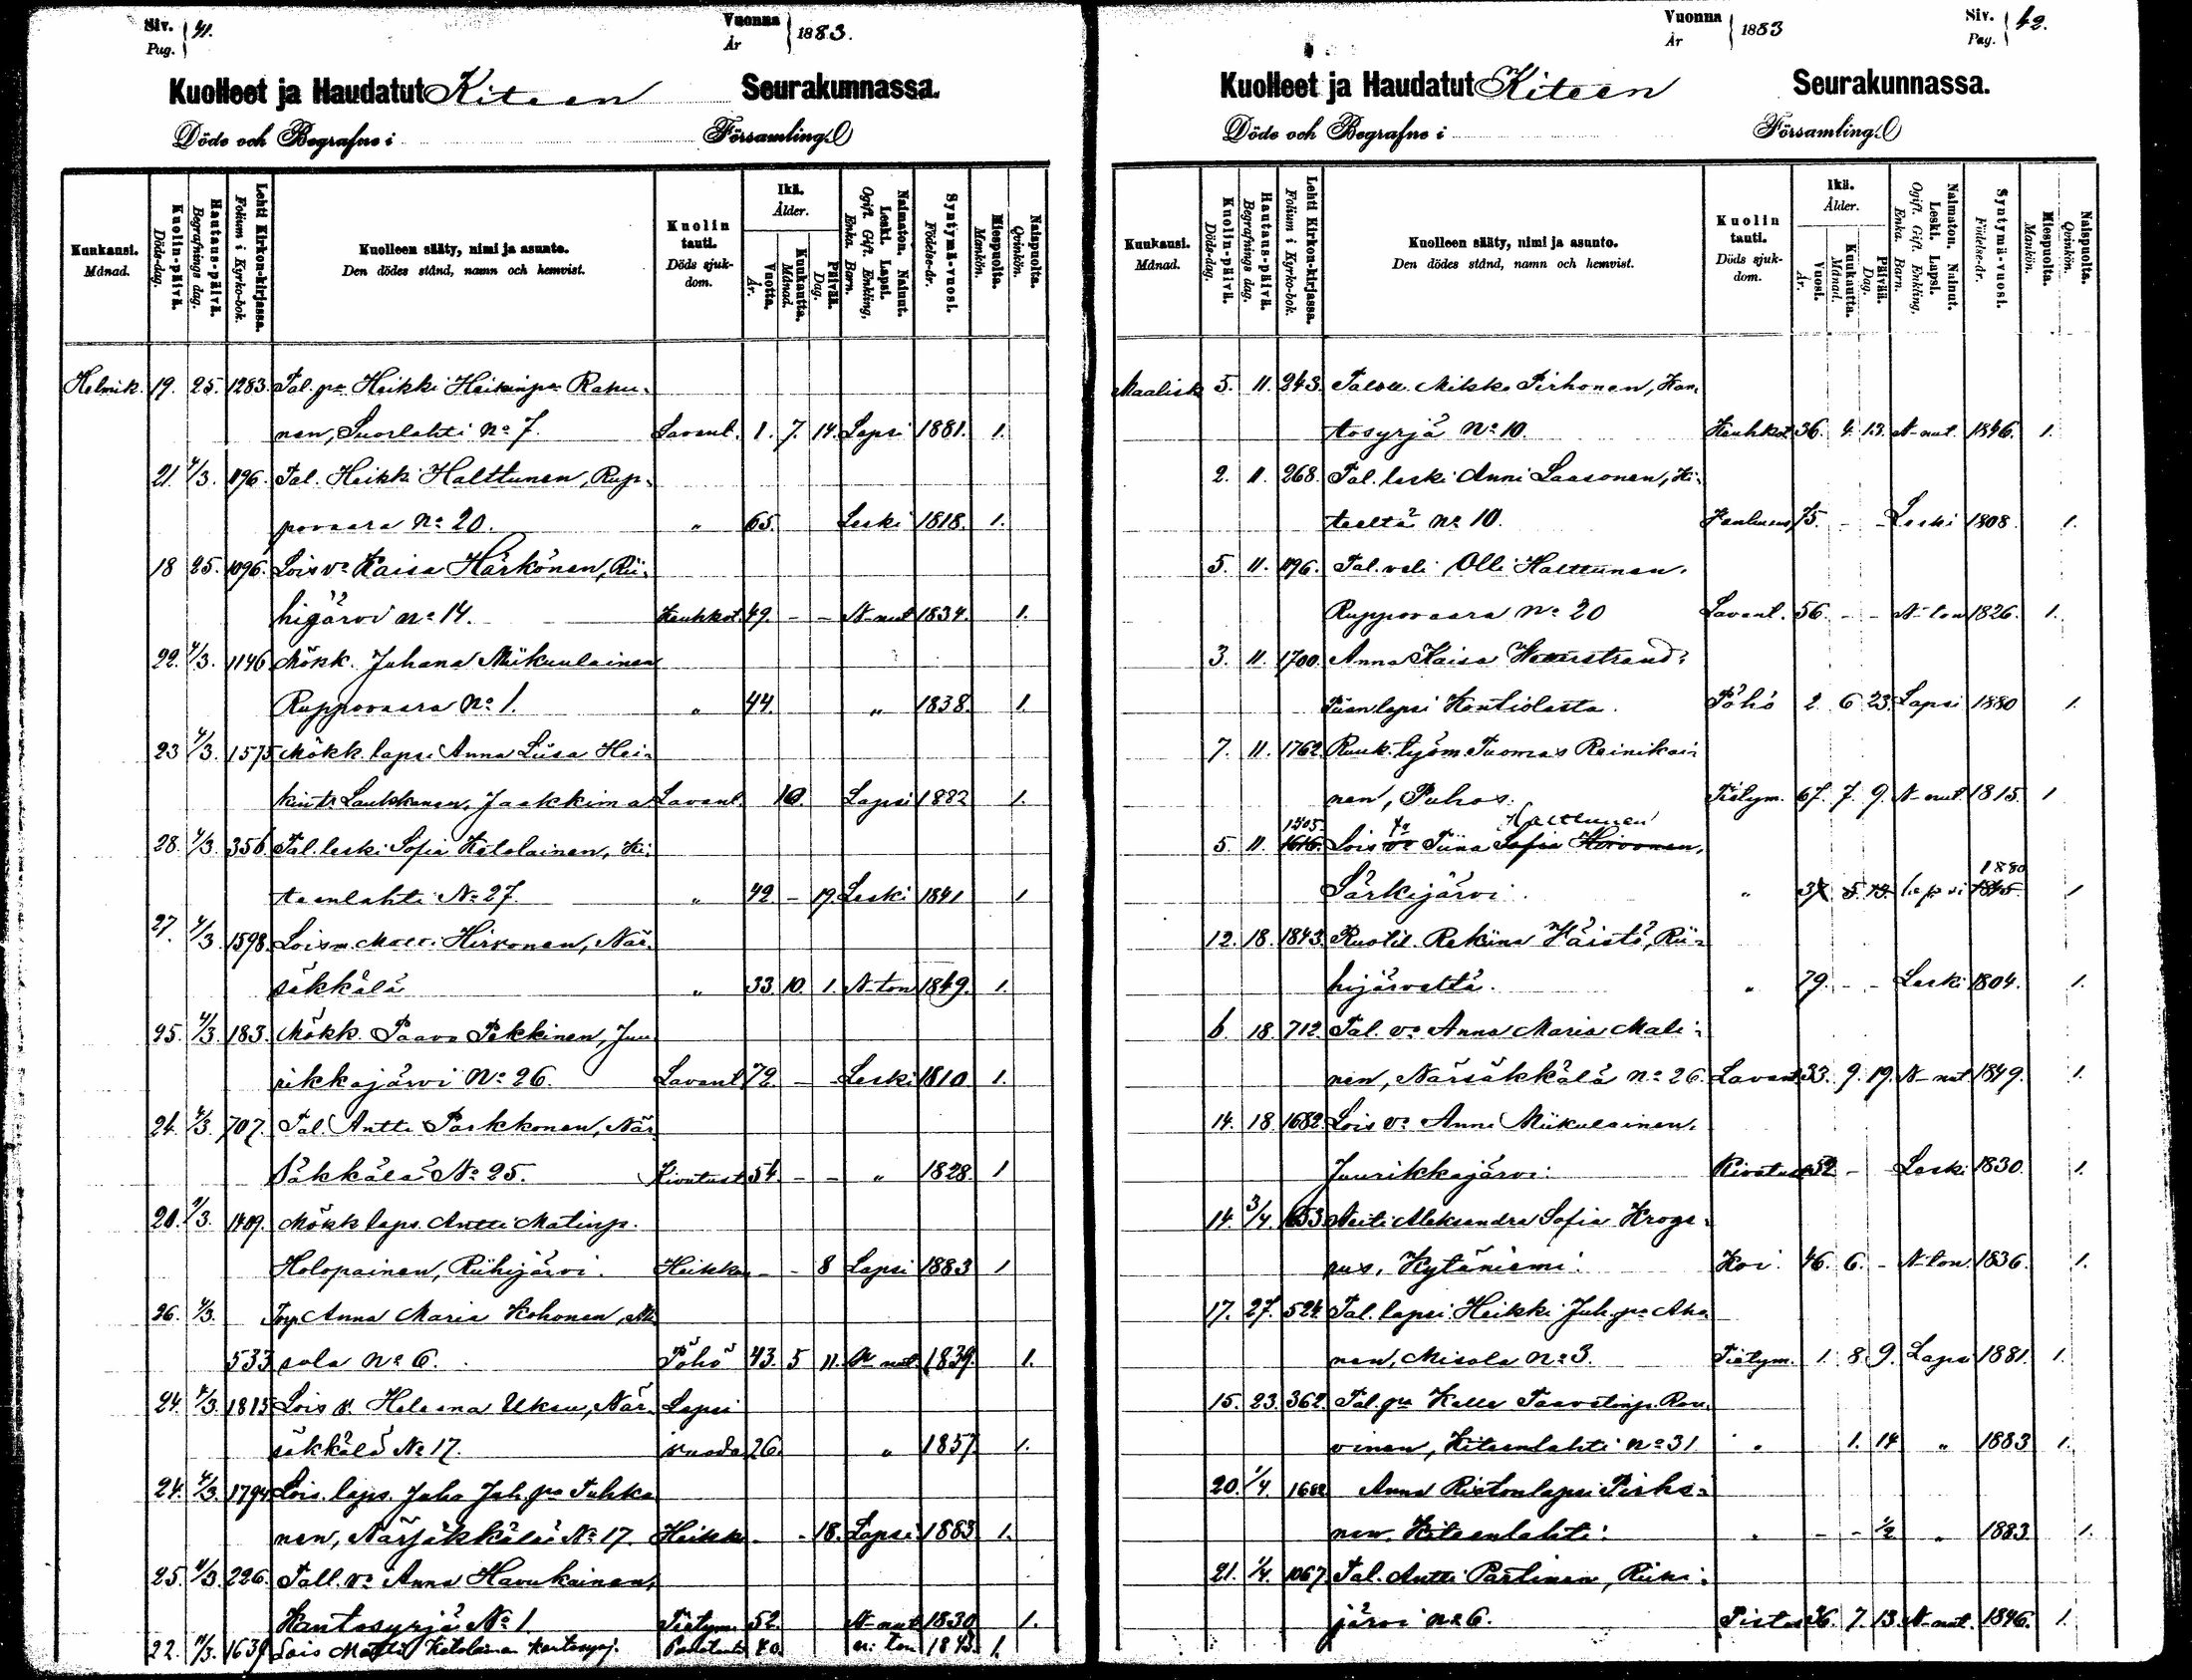 Siv. 41.
Pag.
Vuonna 1883.
År
Kuolleet ja Haudatut Kiteen Seurakunnassa.
Döde och Begrafne i Församling.
Kuukausi. Månad.
Kuolin-päivä. Döds-dag.
Hautaus-päivä. Begrafnings dag.
Lehti Kirkon-kirjassa. Folium i Kyrko-bok.
Kuolleen sääty, nimi ja asunto. Den dödes stånd, namn och hemvist.
Kuolin tauti. Döds sjukdom.
Ikä. Ålder.
Vuotta. År.
Kuukautta. Månad.
Päivää. Dag.
Naimaton. Nainut. Leski. Lapsi. Ogift. Gift. Enkling, Enka. Barn.
Syntymä-vuosi. Födelse-år.
Miespuolta. Mankön.
Naispuolta. Qvinkön.
Helmik. 19. 25. 1283. Tal. pa Heikki Heikinpa Ranu-
nen, Suorlahti No 7. Lavant. 1. 7. 14. Lapsi 1881. 1.
21. 4/3. 1196. Tal. Heikki Halttunen, Rup-
povaara No 20. " 65. Leski 1818. 1.
18 25. 1096. Lois vo Kaisa Härkönen, Rii-
higärvi No 14. Keuhkot. 49. - - N-nut 1834. 1.
22. 4/3. 1146 Mökk. Juhana Miikuulainen
Ruppovaara No 1. " 44. " 1838. 1.
23 4/3. 1575 Mökk. lapsi Anna Liisa Hei-
kint. Laukkanen, Jaakkima Lavant. 10. Lapsi 1882 1.
28. 4/3. 356 Tal. leski Sofia Ketolainen, Ki-
teenlahti No 27. " 42 - 19. Leski 1841 1
27. 4/3. 1598. Lois m. Matti Hirvonen, När-
säkkälä " 33. 10. 1. N-ton 1849. 1.
25. 4/3. 183. Mökk. Paavo Pekkinen, Juu
rikkajärvi No 26. Lavant 72. - Leski 1810 1.
24. 4/3. 707. Tal. Antti Parkkonen, När
säkkälä No 25. Kivutust 54. - - " 1828. 1
20. 4/3. 1409. Mökk laps. Antti Matinp.
Holopainen, Riihijärvi. Heikko - - 8 Lapsi 1883 1
26. 4/3. Torp. Anna Maria Kohonen, Mi
533 sola No 6. Pöhö 43. 5 11. N-nut. 1839. 1.
24. 4/3. 1815 Lois v. Helena Uksu, När- Lapsi
säkkälä No 17. vuode 26. " 1857. 1.
24. 4/3. 1794 Lois. laps. Juho Juh. pa Tuhka
nen, Närsäkkälä No 17. Heikko - - 18. Lapsi 1883 1.
25. 4/3. 226. Tall. vo Anna Havukainen,
Kantosyrjä No 1. Pistym. 52. N-nut 1830. 1.
22. 4/3. 1639 Lois Matti Ketolainen Kantosyrj. 40. n: ton 1843. 1.
Vuonna 1883
År
Siv. 42.
Pag.
Kuolleet ja Haudatut Kiteen Seurakunnassa.
Döde och Begrafne i Församling.
Kuukausi. Månad.
Kuolin-päivä. Döds-dag.
Hautaus-päivä. Begrafnings dag.
Lehti Kirkon-kirjassa. Folium i Kyrko-bok.
Kuolleen sääty, nimi ja asunto. Den dödes stånd, namn och hemvist.
Kuolin tauti. Döds sjukdom.
Ikä. Ålder.
Vuosi. År.
Kuukautta. Månad.
Päivää. Dag.
Naimaton. Nainut. Leski. Lapsi. Ogift. Gift. Enkling. Enka. Barn.
Syntymä-vuosi. Födelse-år.
Miespuolta. Mankön.
Naispuolta. Qvinkön.
Maalisk 5. 11. 243. Mikko Pirhonen, Kan-
tosyrjä No 10. Keuhkot 36. 4. 13. N-nut 1846. 1.
2. 11. 268. Tal. leski Anni Laasonen, Ki-
teeltä No 10. 75. - - Leski 1808. 1.
5. 11. 1196. Tal. veli Olli Halttunen.
Ruppovaara No 20 Lavant. 56. - - N-ton 1826. 1.
3. 11. 1700. Anna Kaisa
Piian lapsi Kontiolasta. Pöhö 2. 6 23. Lapsi 1880 1.
7. 11. 1762. Ruuk. työm. Tuomas Reinikai-
nen, Puhos. Pistym. 67. 7. 9. N-nut. 1815. 1
1505. tr Halttunen
5. 11. 1616. Lois vo Tiina Sofia Hirvonen,
1880
Särkijärvi. " 37 5. 13. lapsi 1845 1
12. 18. 1843. Ruotil. Rekiina Väistö, Rii-
hijärveltä. " 79. - - Leski 1804. 1.
6. 18. 712. Tal. vo Anna Maria Mali-
nen, Närsäkkälä No 26. Lavant 33. 9. 19. N-nut 1849. 1.
14. 18. 1682. Lois vo Anni Miikulainen.
Juurikkajärvi. Kivutust 52. - Leski 1830. 1.
14. 3/4. 1653 Neiti Aleksandra Sofia Kroge-
rus, Kytäniemi. Kori. 46. 6. - N-ton 1836. 1.
17. 27. 524. Tal. lapsi Heikki Juh. pa Aha
nen, Misola No 3. Pistym. 1. 8. 9. Lapsi 1881. 1.
15. 23. 362. Tal. pa Kalle Taavetinp. Rou-
vinen, Kiteenlahti No 31. " 1. 14 " 1883 1.
20. 1/4. 1682 Anna Riston lapsi Pirho-
nen, Kiteenlahti. " - - 1/2 " 1883. 1.
21. 1/4. 1067. Tal. Antti Partinen, Riihi-
järvi No 6. Pistos 36. 7. 13. N-nut. 1846. 1.